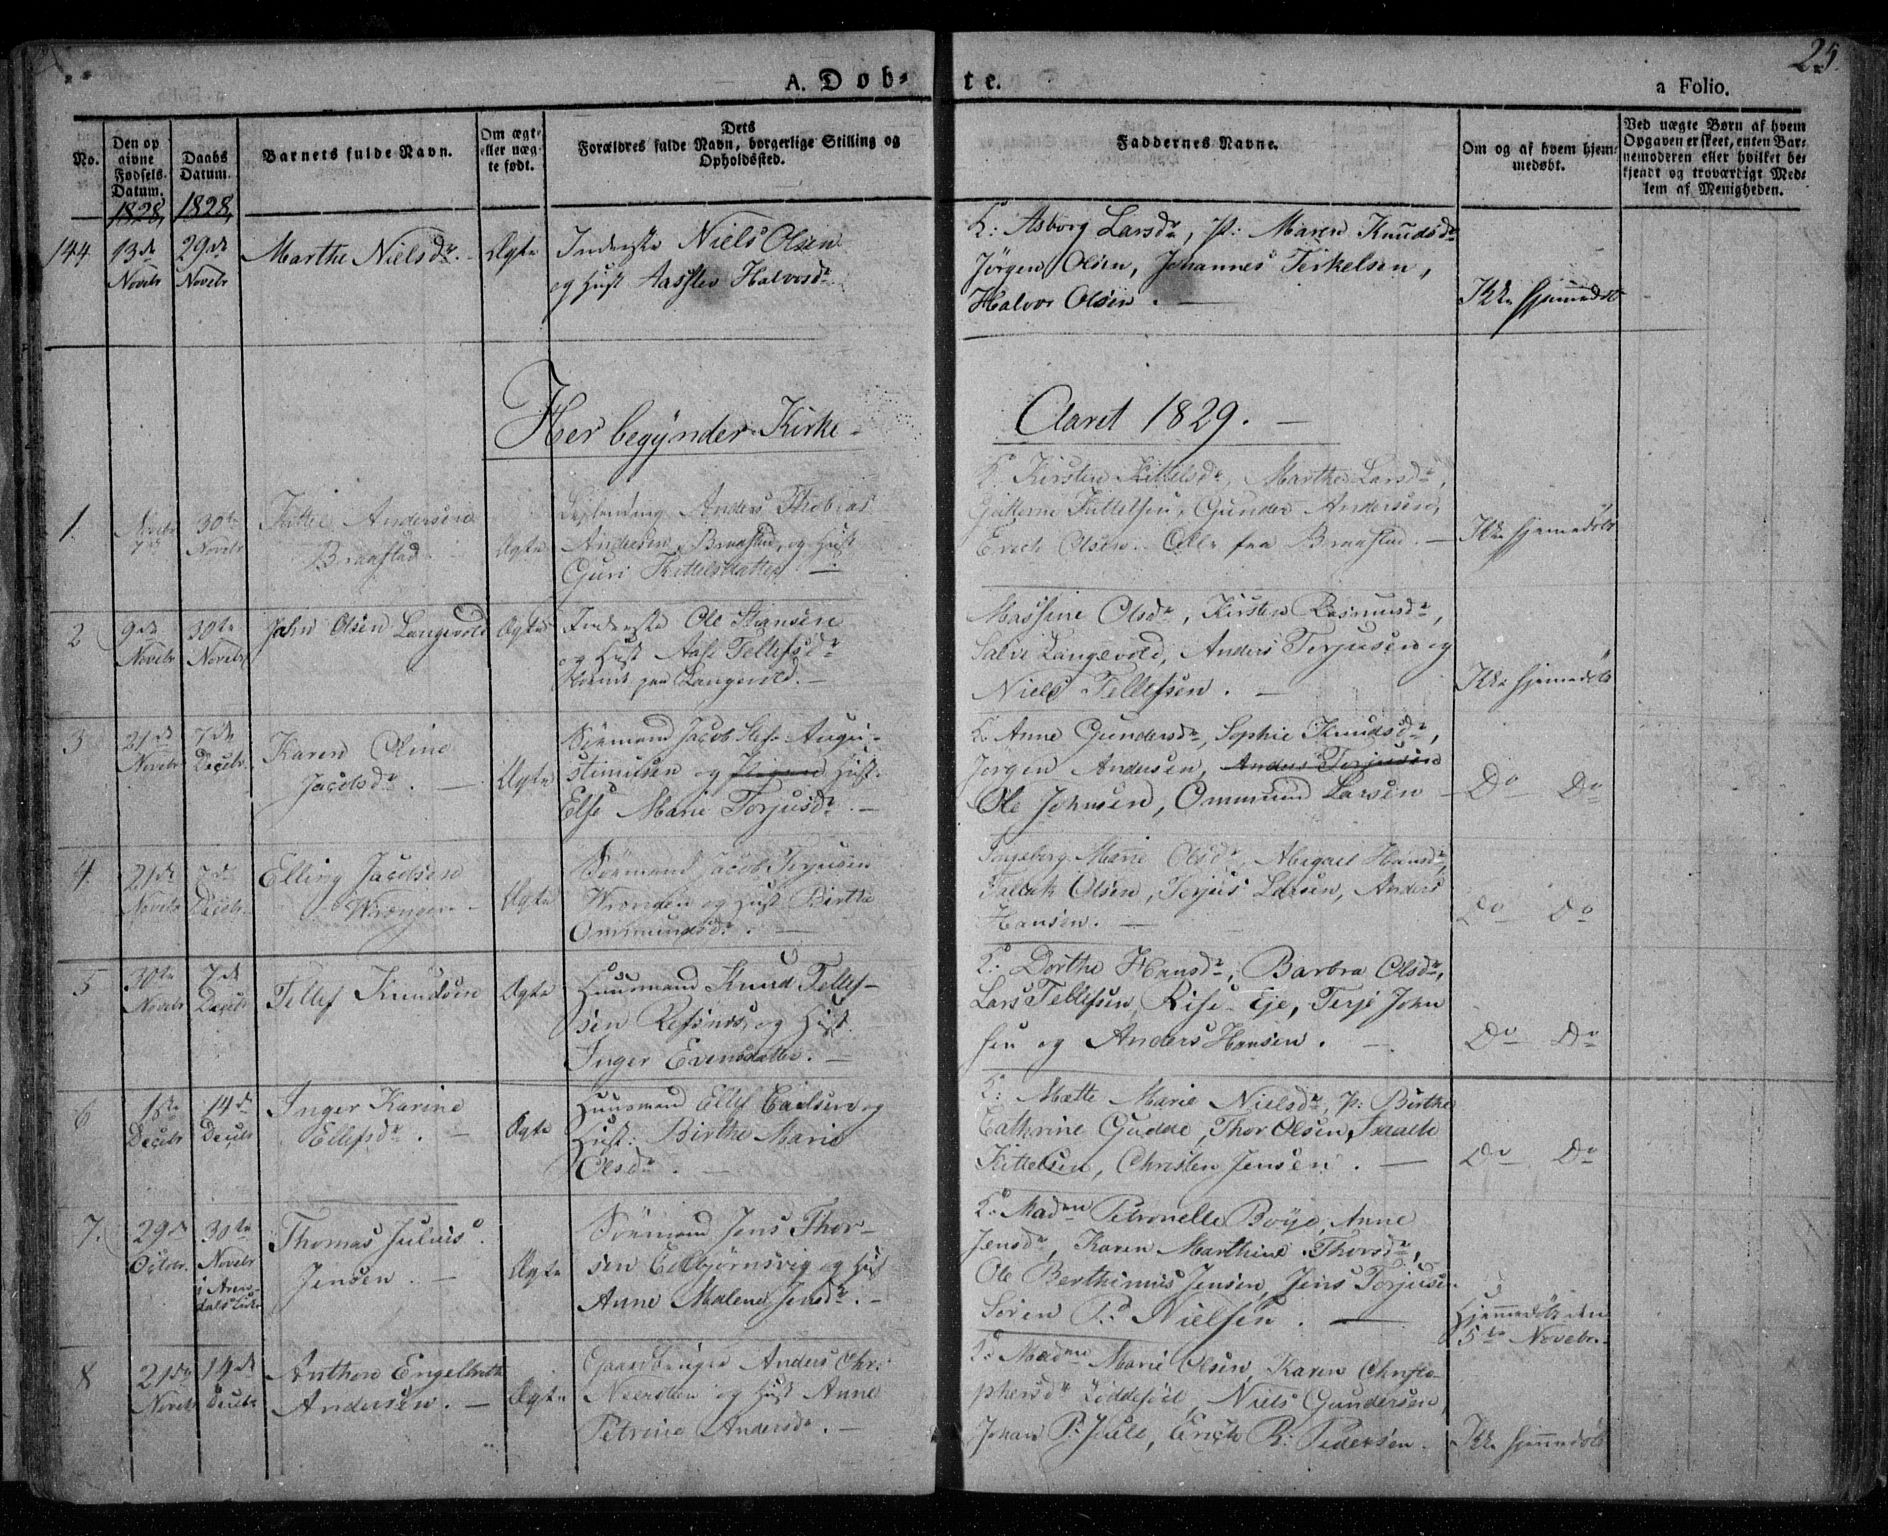 25.
A. Døb-te.
a Folio.
No.
Den opgivne Fødsels Datum.
1828,
Daabs Datum.
1828,
Barnets fulde Navn.
Om ægte eller uægte født.
Dets Forældres fulde Navn, borgerlige Stilling og Opholdssted.
Faddernes Navne.
Om og af hvem hjemmedøbt.
Ved uægte Børn af hvem Opgaven er skeet, enten Barnemoderen eller hvilket bekjendt og troværdigt Medlem af Menigheden.
144
13de Novebr
29de Novebr
Marthe Nielsdr. -
Ægte
Inderste Niels Olsen
og Hust Halvorsdr
K: Asborg Larsdr, P: Maren Knudsdr
Jørgen Olsen, Johannes Terkelsen,
Halvor Olsen. -
Ikke hjemmedøbt
Her begynder Kirke-
Aaret 1829. -
1.
Novebr
30te Novebr
Kittel Andersen
Braastad
Ægte
Anders Thobias
Andersen Braastad, og Hust
Guri Kittelsdatter. -
K. Kirsten Kittelsdr, Marthe Larsdr,
Kittelsen, Gunder Andersen,
Erich Olsen. Alle fra Braastad. -
Ikke hjemmedøbt
2
9de Novebr
30te Novebr
John Olsen Langevold
Ægte
Inderste Ole Hansen
og Hust Aase Tellefsdr
Langevold. -
Olsdr, Kirsten Rasmusdr,
Salve Langevold, Anders Terjusen og
Niels Tellefsen. -
Ikke hjemmedøbt
3
21de Novebr
7de Decebr.
Karen Oline
Jacobsdr. -
Ægte
Sømand Jacob Augu-
stinusen og Hust.
Else Marie Torjusdr. -
K. Anne Gundersdr, Sophie Knudsdr,
Jørgen Andersen, Anders Terjusen
Ole Johnsen, Ommund Larsen -
Do Do
4.
21de Novebr
7de Decebr.
Elling Jacobsen
Wrængen -
Ægte
Sømand Jacob Terjusen
Wrængen og Hust Birthe
Ommundsdr. -
Ingeborg Marie Olsdr, Abigael Hansdr,
Tallak Olsen, Terjus Larsen, Anders
Hansen. -
Do Do
5
30te Novebr
7de Decebr
Tellef Knudsen
Ægte
Huusmand Knud Tellef-
sen Refsnes, og Hust.
Inger Evensdatter. -
K: Dorthe Hansdr, Barbra Olsdr,
Lars Tellefsen, Rise-Eje, Terje John
sen og Anders Hansen. -
Do Do
6
1ste Decebr
14de Decebr
Inger Karine
Ellefsdr. -
Ægte
Huusmand Ellef og
Hust: Birthe Marie
Olsdr. -
K: Mætte Marie Nielsdr, P: Birthe
Cathrine Gudde, Thor Olsen, Isaach
Kittelsen, Christen Jensen. -
Do Do
7.
29de Octbr.
30te Novebr i Arendals Kirke
Thomas Julius
Jensen. -
Ægte
Sømand Jens Thor-
sen Eidbjørnsvig og Hust
Anne Malene Jensdr. -
K: Madme Petronelle Boye, Anne
Jensdr, Karen Marthine Thorsdr,
Ole Berthinius Jensen, Jens Torjusen
Søren P. Nielsen. -
Hjemmedøbt den
5te Novebr.
8
21de Novebr
14de Decebr
Anthon Engelbreth
Andersen. -
Ægte
Gaardbruger Anders Chr:
Neersten og Hust Anne
Petrine Andersdr. -
K: Madme Marie Olsen, Karen Christo-
phersdr Løddesøl, Niels Gundersen,
Johan P. Juell, Erich R: Pedersen.
Ikke hjemmedøbt